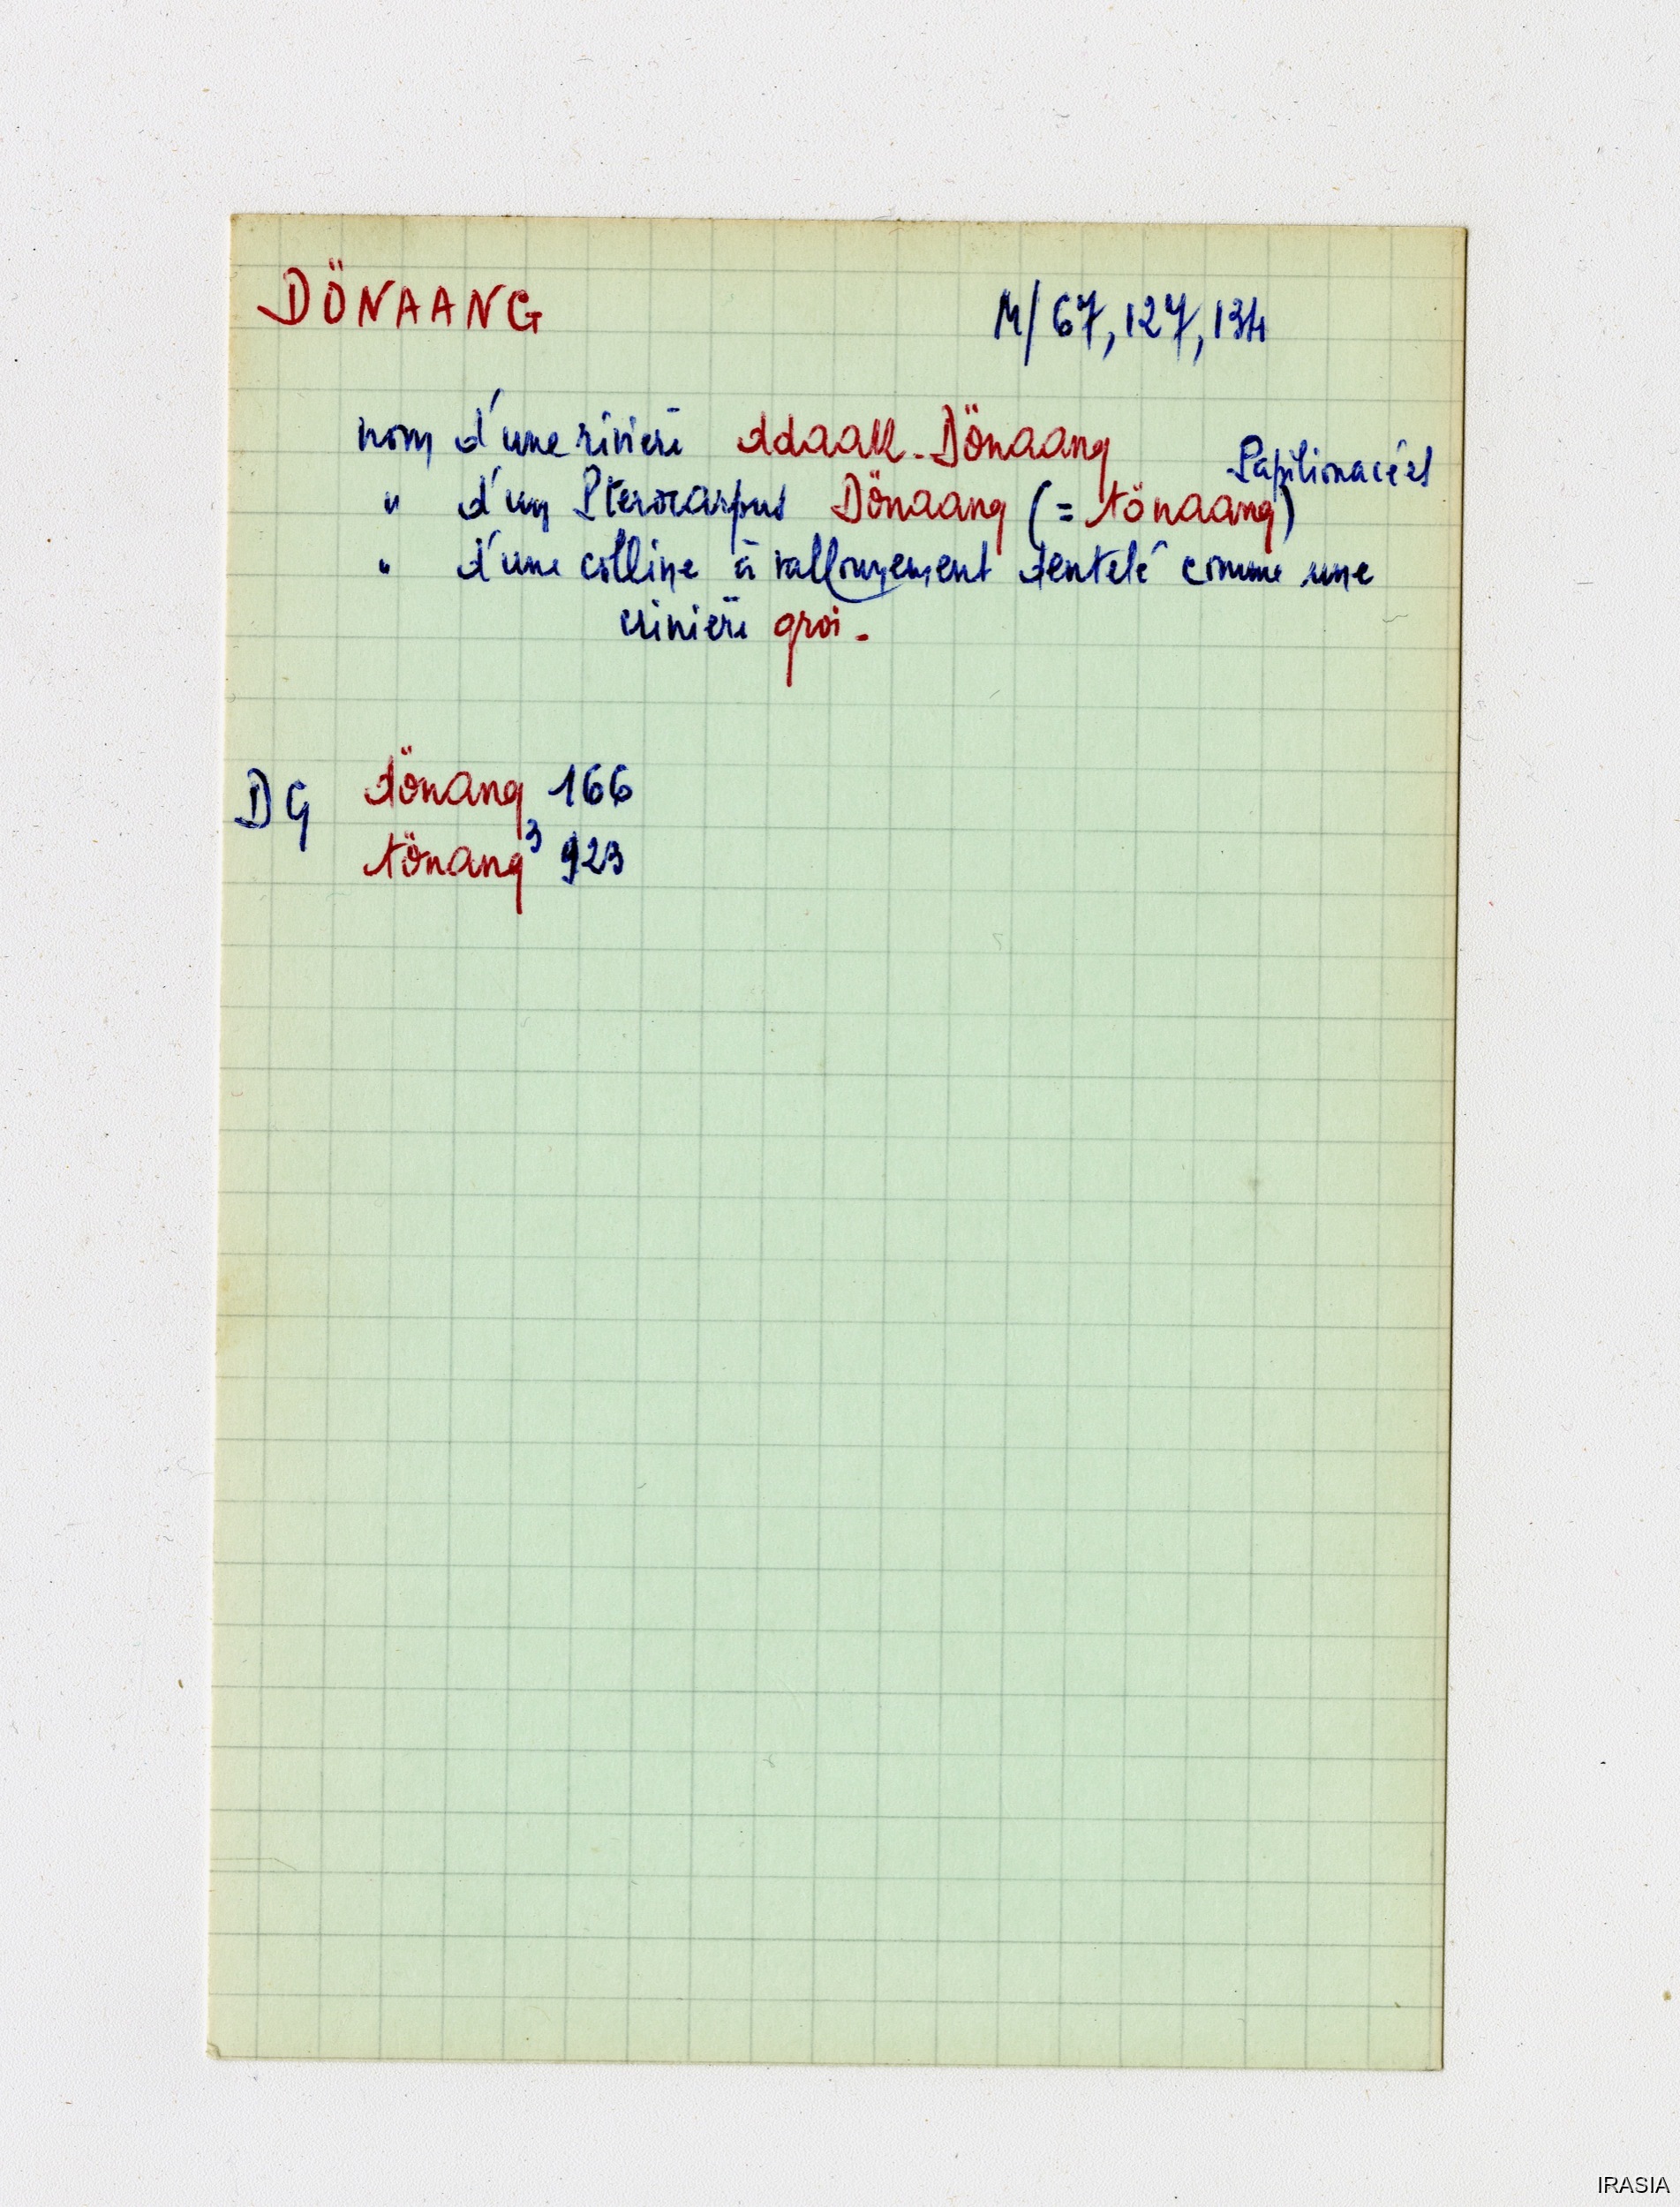 DÖNAANG M/67, 127, 134
nom d'une rivière ddaak-Dönaang
Papilionacées
" d'un Pterocarpus Dönaang (= tönaang)
" d'une colline à vallonnement dentelé comme une
crinière groi.
DG dönang 166
tönang³ 923
IRASIA